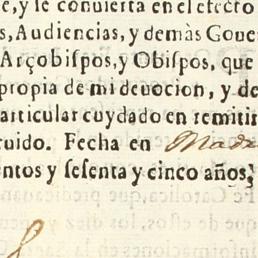 e, y se convierta en el efecto
s, Audiencias, y demàs Goue
Arçobispos, y Obispos, que
propia de mi deuocion, y de
articular cuydado en remitir
ruido. Fecha en Madr
entos y sesenta y cinco años,